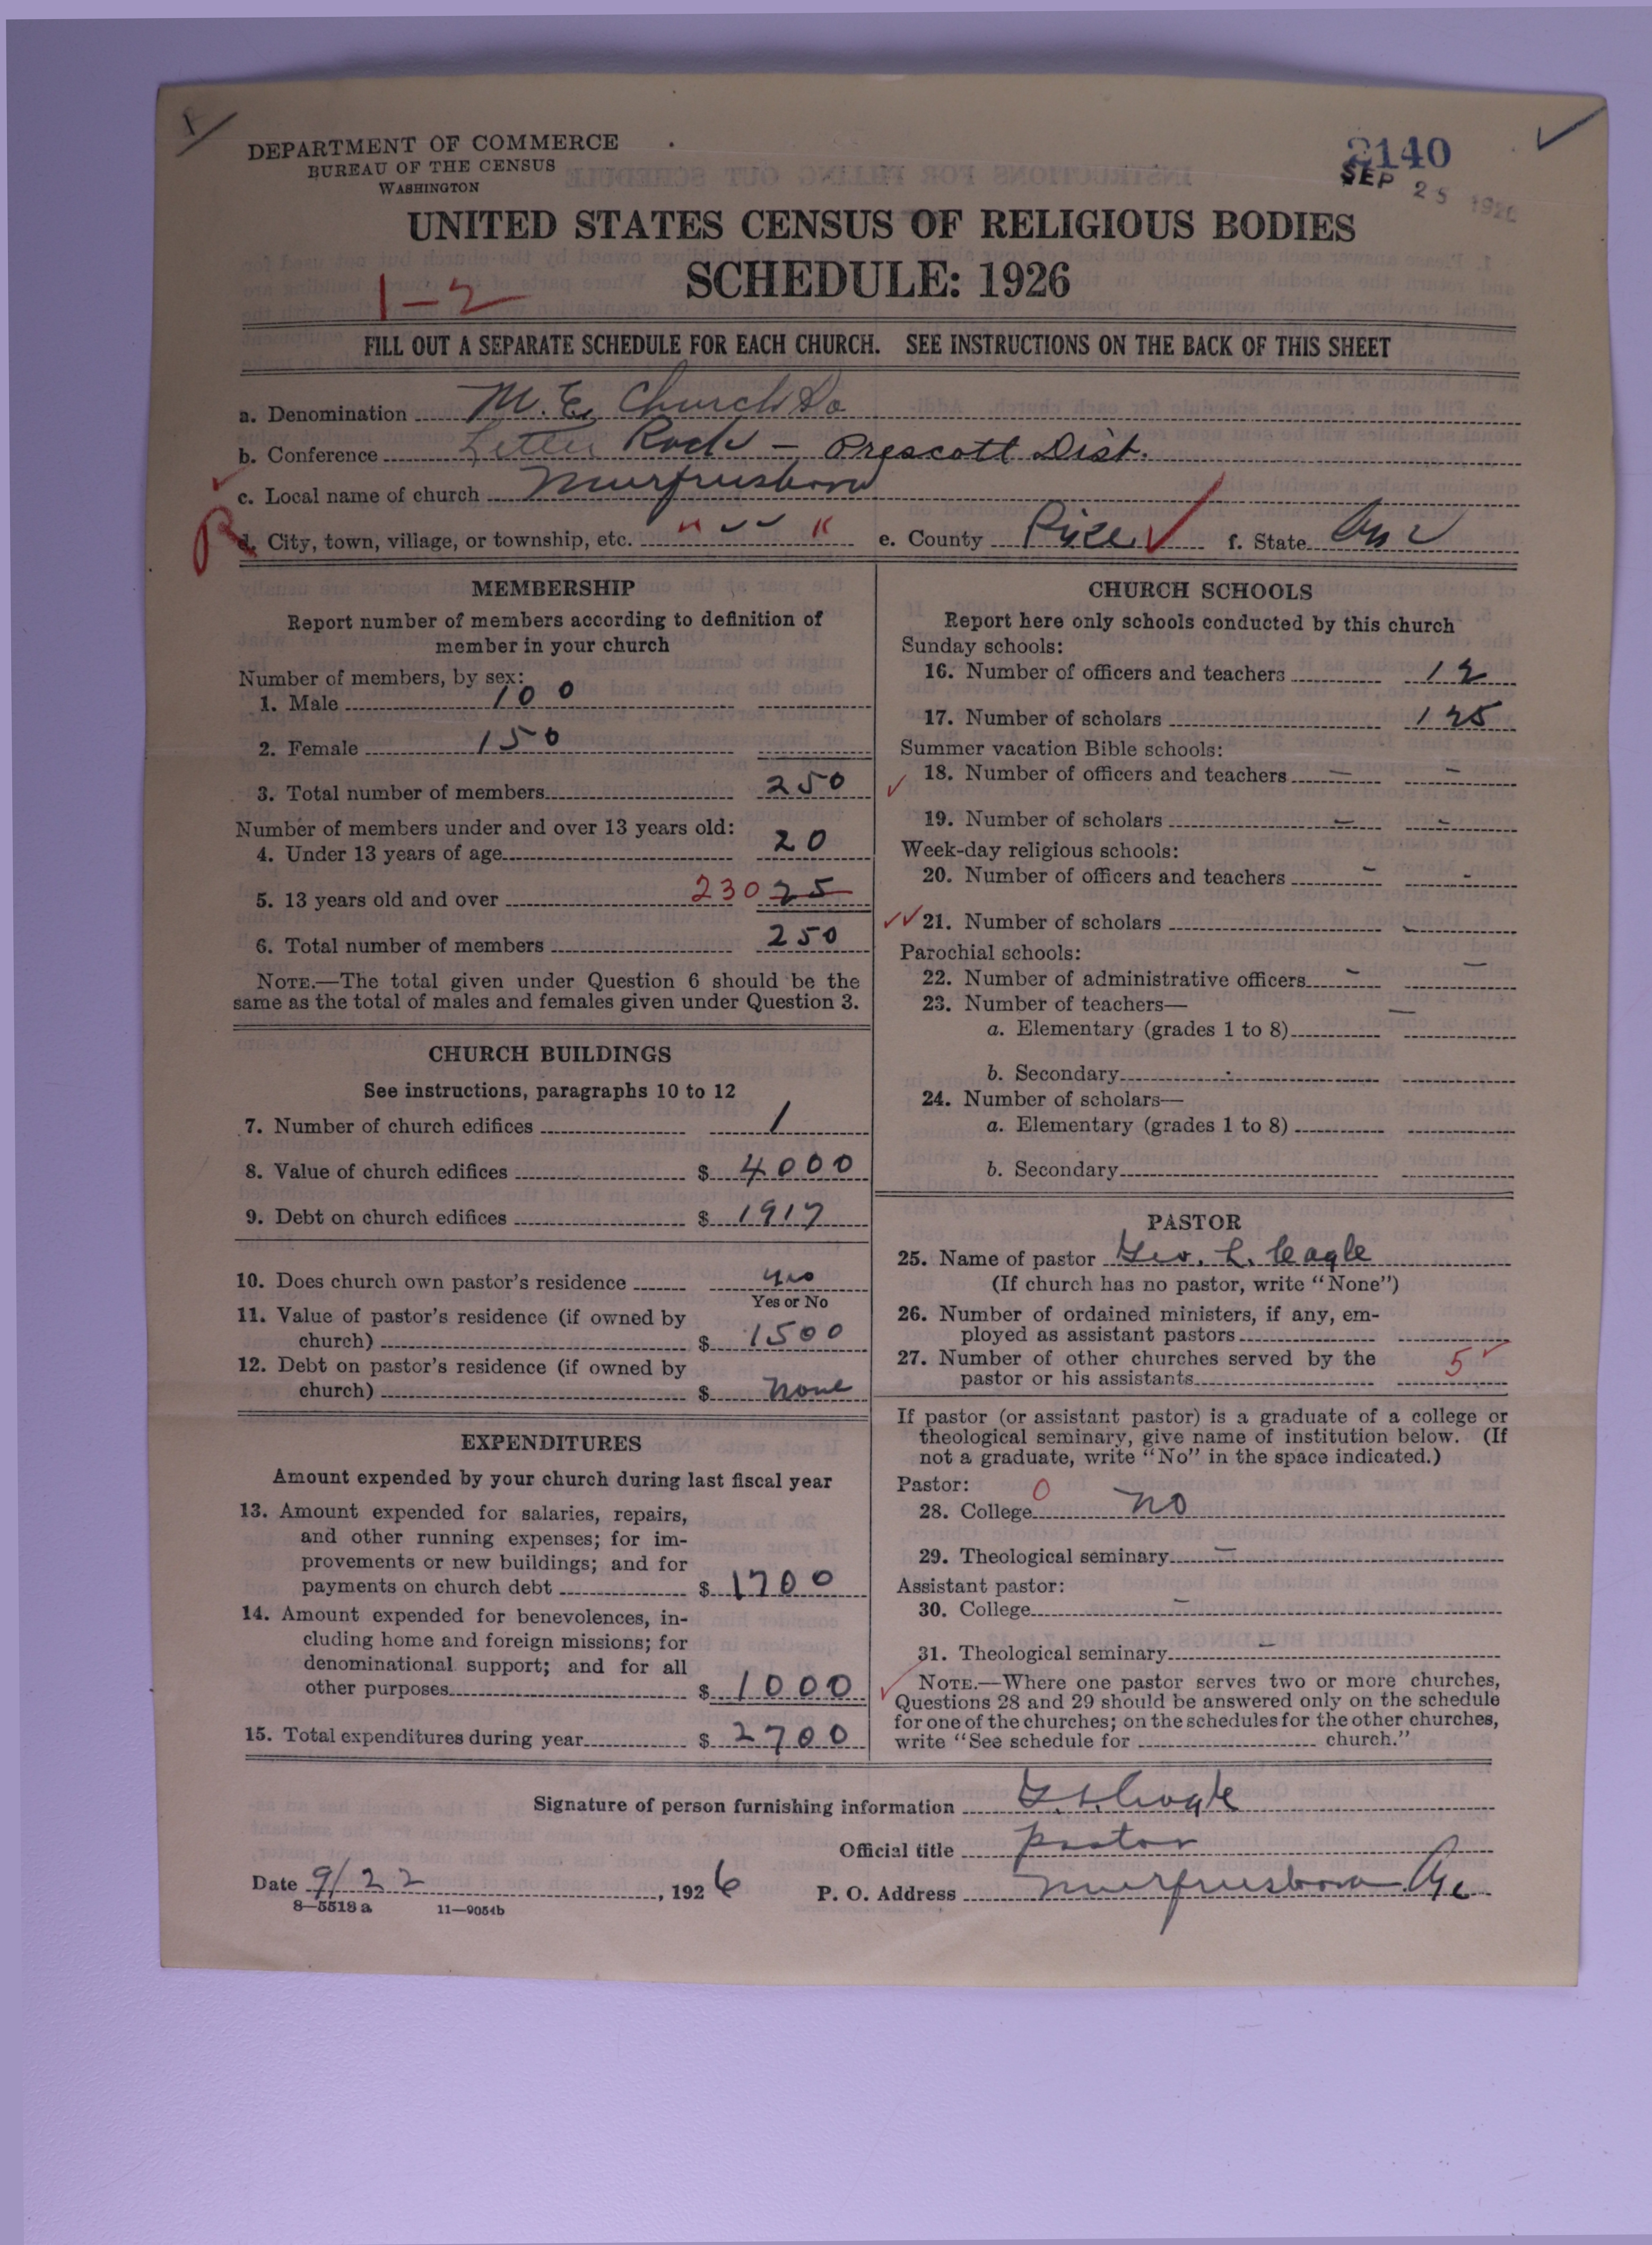 DEPARTMENT OF COMMERCE
BUREAU OF THE CENSUS
WASHINGTON
2140
SEP 25 1926
UNITED STATES CENSUS OF RELIGIOUS BODIES
SCHEDULE: 1926
1-2
FILL OUT A SEPARATE SCHEDULE FOR EACH CHURCH. SEE INSTRUCTIONS ON THE BACK OF THIS SHEET
a. Denomination M. E. Church So
b. Conference Little Rock - Prescott Dist.
c. Local name of church Murfreesboro
d. City, town, village, or township, etc. " " e. County Pike f. State Ark
MEMBERSHIP
Report number of members according to definition of
member in your church
Number of members, by sex:
1. Male 100
2. Female 150
3. Total number of members 250
Number of members under and over 13 years old:
4. Under 13 years of age 20
5. 13 years old and over 230 25
6. Total number of members 250
NOTE.—The total given under Question 6 should be the
same as the total of males and females given under Question 3.
CHURCH BUILDINGS
See instructions, paragraphs 10 to 12
7. Number of church edifices 1
8. Value of church edifices $ 4000
9. Debt on church edifices $ 1917
10. Does church own pastor's residence yes
Yes or No
11. Value of pastor's residence (if owned by
church) $ 1500
12. Debt on pastor's residence (if owned by
church) $ none
EXPENDITURES
Amount expended by your church during last fiscal year
13. Amount expended for salaries, repairs,
and other running expenses; for im-
provements or new buildings; and for
payments on church debt $ 1700
14. Amount expended for benevolences, in-
cluding home and foreign missions; for
denominational support; and for all
other purposes $ 1000
15. Total expenditures during year $ 2700
CHURCH SCHOOLS
Report here only schools conducted by this church
Sunday schools:
16. Number of officers and teachers 12
17. Number of scholars 125
Summer vacation Bible schools:
18. Number of officers and teachers - -
19. Number of scholars - -
Week-day religious schools:
20. Number of officers and teachers - -
21. Number of scholars
Parochial schools:
22. Number of administrative officers - -
23. Number of teachers—
a. Elementary (grades 1 to 8) -
b. Secondary
24. Number of scholars—
a. Elementary (grades 1 to 8)
b. Secondary
PASTOR
25. Name of pastor Geo. L. Cagle
(If church has no pastor, write "None")
26. Number of ordained ministers, if any, em-
ployed as assistant pastors
27. Number of other churches served by the
pastor or his assistants 5
If pastor (or assistant pastor) is a graduate of a college or
theological seminary, give name of institution below. (If
not a graduate, write "No" in the space indicated.)
Pastor:
28. College 0 no
29. Theological seminary -
Assistant pastor:
30. College -
31. Theological seminary -
NOTE.—Where one pastor serves two or more churches,
Questions 28 and 29 should be answered only on the schedule
for one of the churches; on the schedules for the other churches,
write "See schedule for church."
Signature of person furnishing information G. L. Cagle
Official title pastor
Date 9/22, 1926 P. O. Address Murfreesboro Ark
8—5518 a 11—9054b